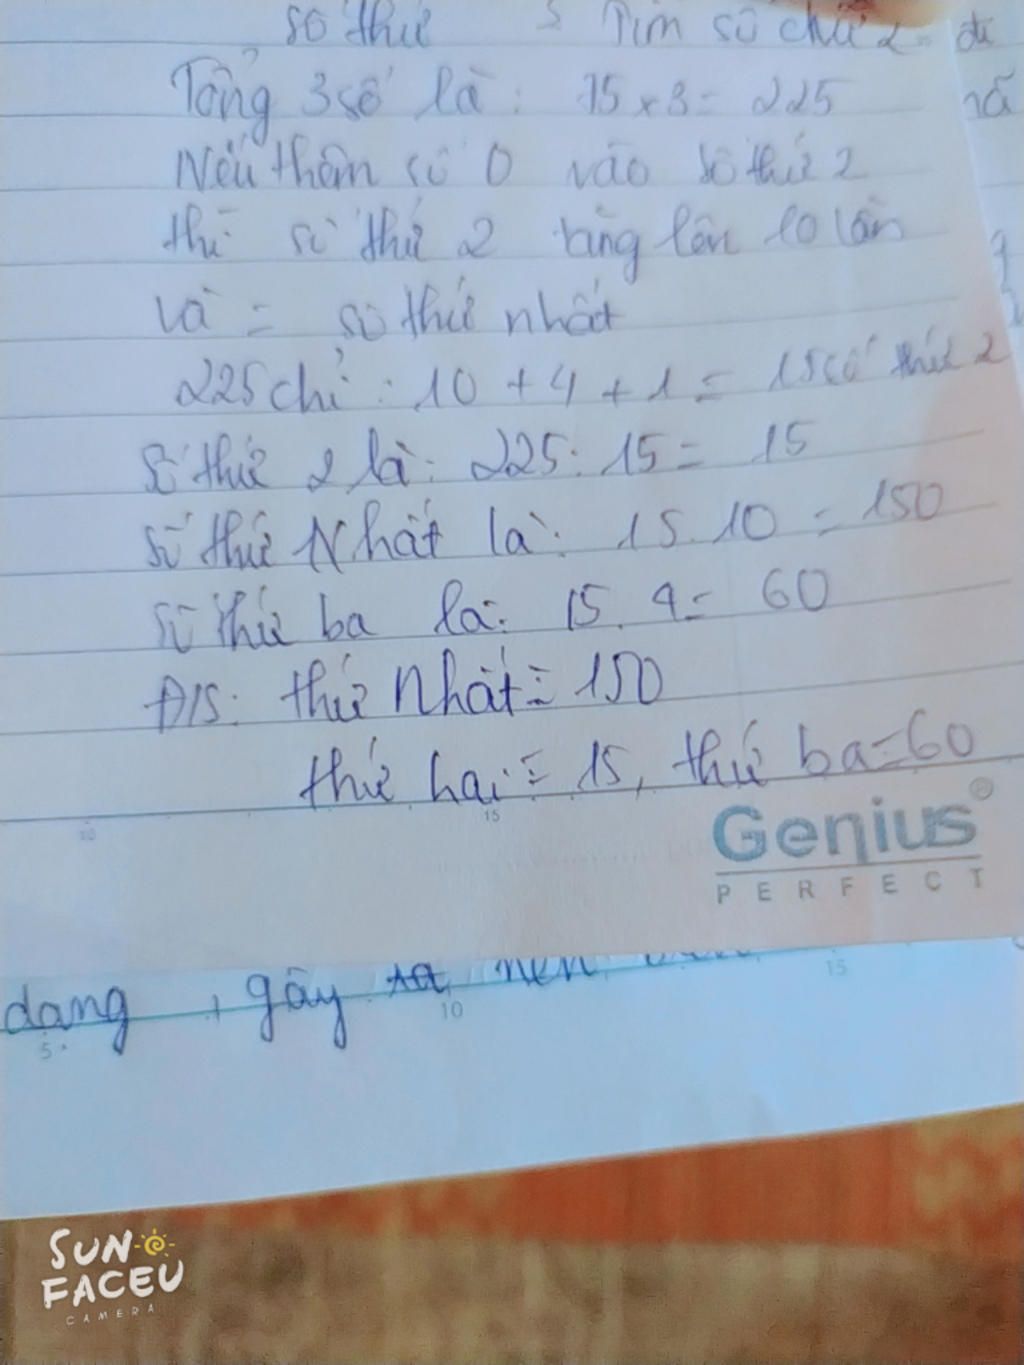 số thứ Tìm số chữ 2 đi
Tổng 3 số là : 75 x 3 = 225
Nếu thêm số 0 vào số thứ 2
thì số thứ 2 tăng lên 10 lần
và = số thứ nhất
225 chỉ : 10 + 4 + 1 = 15 số thứ 2
Số thứ 2 là : 225 : 15 = 15
Số thứ Nhất là : 15 . 10 = 150
Số thứ ba là : 15 . 4 = 60
Đ/S : thứ Nhất = 150
thứ hai = 15, thứ ba = 60
10
15
Genius®
PERFECT
dang , gây ra nên
5
10
15
SUN
FACEU
CAMERA